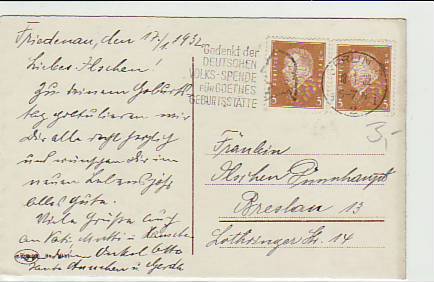 Friedenau, den 17/1. 1932
Liebes Ilschen!
Zu deinem Geburts-
tag gratulieren wir
dir alle recht herzlich
und wünschen dir im
neuen Lebensjahr
alles Gute.
Viele Grüße auch
an Vati, Mutti u.
dein Onkel Otto
Tante u. Gerda
Gedenkt der
DEUTSCHEN
VOLKS-SPENDE
FÜR GOETHES
GEBURTSSTÄTTE
BERLIN
5 5
5 5
3,-
Fräulein
Ilschen
Breslau 13
Lothringer Str. 14